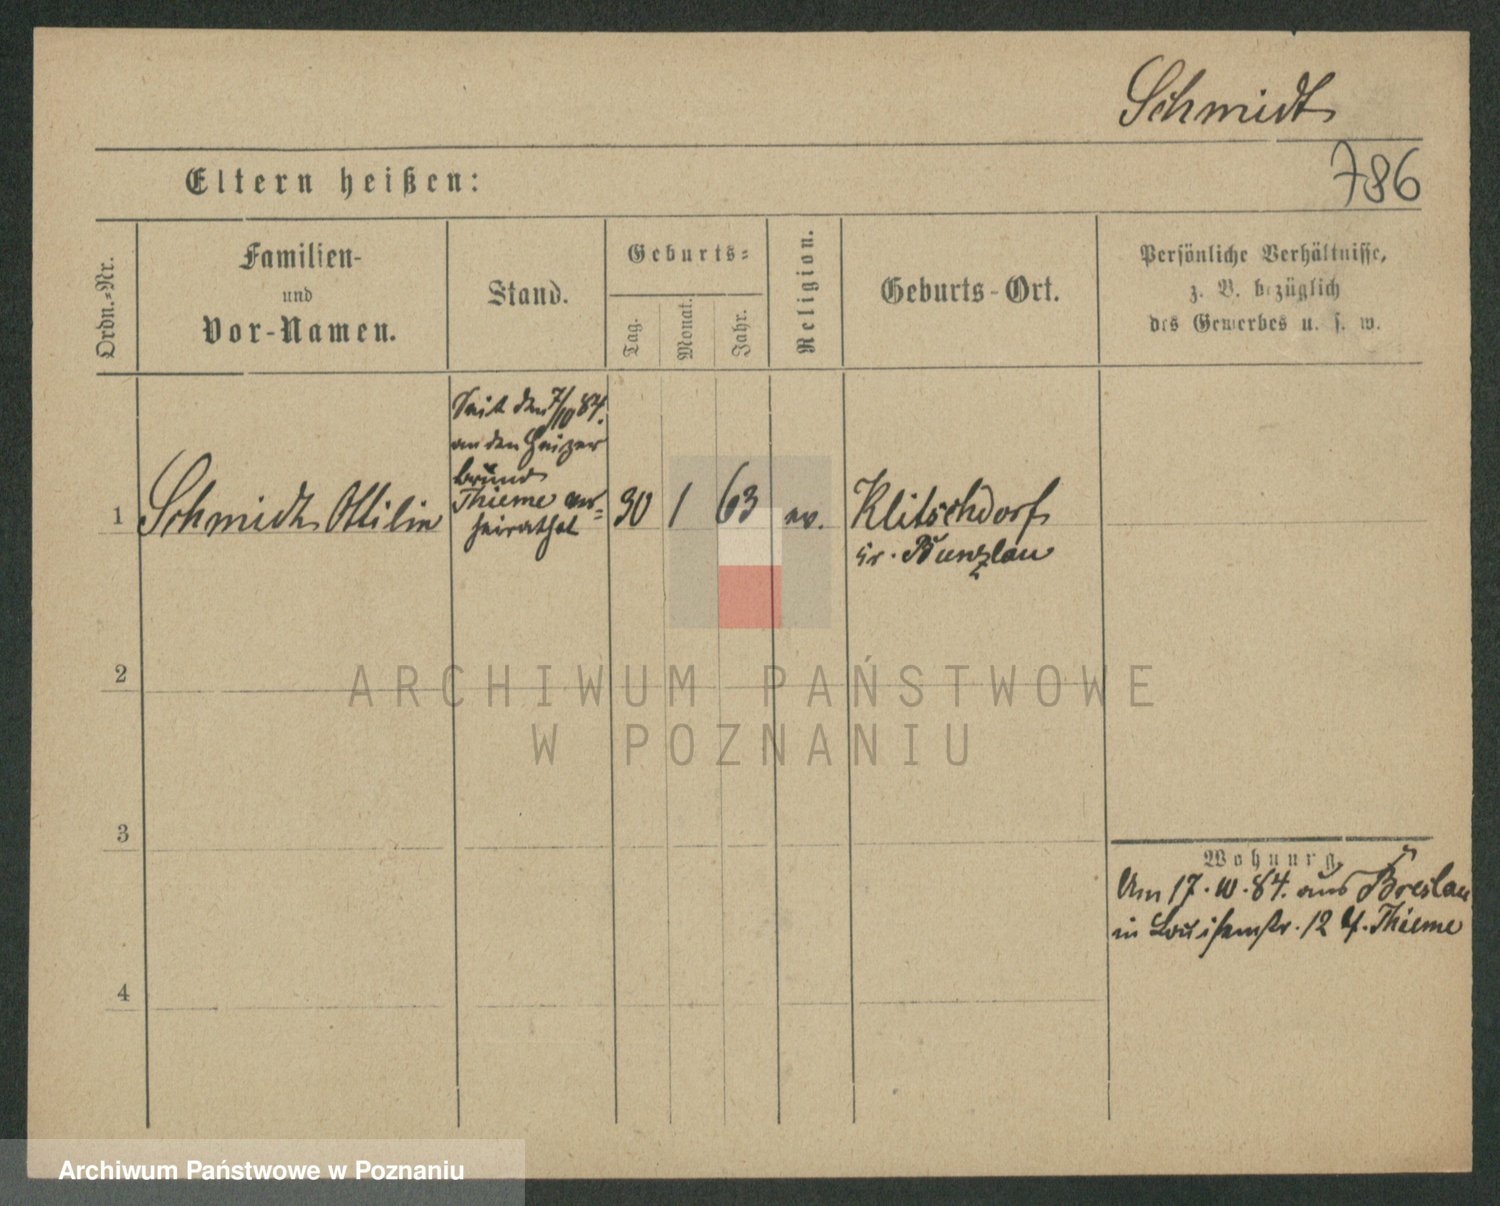 Schmidt
786
Eltern heißen:
Ordn.-Nr.
Familien-
und
Vor-Namen.
Stand.
Geburts-
Tag.
Monat.
Jahr.
Religion.
Geburts-Ort.
Persönliche Verhältnisse,
z. B. bezüglich
des Gewerbes u. s. w.
Seit den 7/10 84.
an den Heizer
Bruno
Thieme ver=
heirathet
1 Schmidt Ottilie 30 1 63 ev. Klitschdorf
Kr. Bunzlau
2
ARCHIWUM PAŃSTWOWE
W POZNANIU
3
Wohnung.
Am 17. 10. 84. aus Breslau
in Louisenstr. 12 Thieme
4
Archiwum Państwowe w Poznaniu